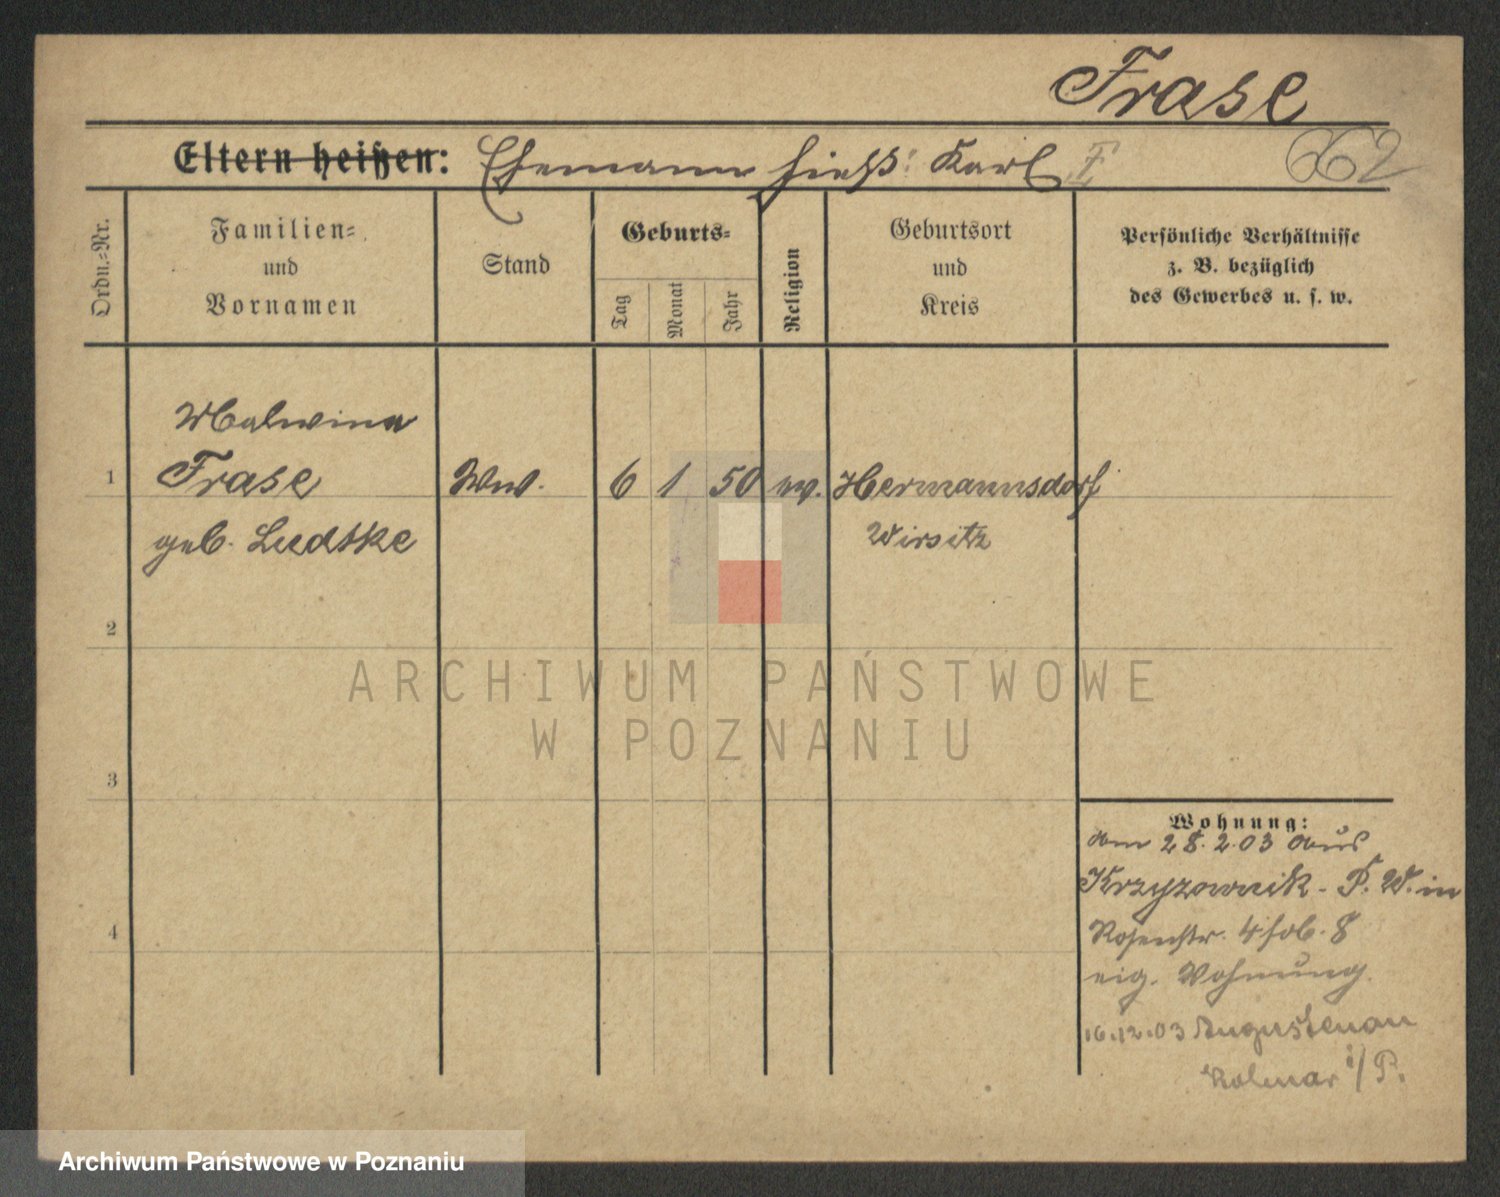 Frase
662
Eltern heißen: Ehemann hieß: Karl F
Ordn.=Nr.
Familien=
und
Vornamen
Stand
Geburts=
Tag
Monat
Jahr
Religion
Geburtsort
und
Kreis
Persönliche Verhältnisse
z. B. bezüglich
des Gewerbes u. s. w.
Malwina
1 Frase Ww. 6 1 50 ev. Hermannsdorf
geb. Ludtke Wirsitz
2
3
4
Wohnung:
am 28.2.03 aus
Krzyzownik - P. W. in
Rosenstr. 4
eig. Wohnung.
16.12.03 Augustenau
Kolmar i/P.
ARCHIWUM PAŃSTWOWE
W POZNANIU
Archiwum Państwowe w Poznaniu